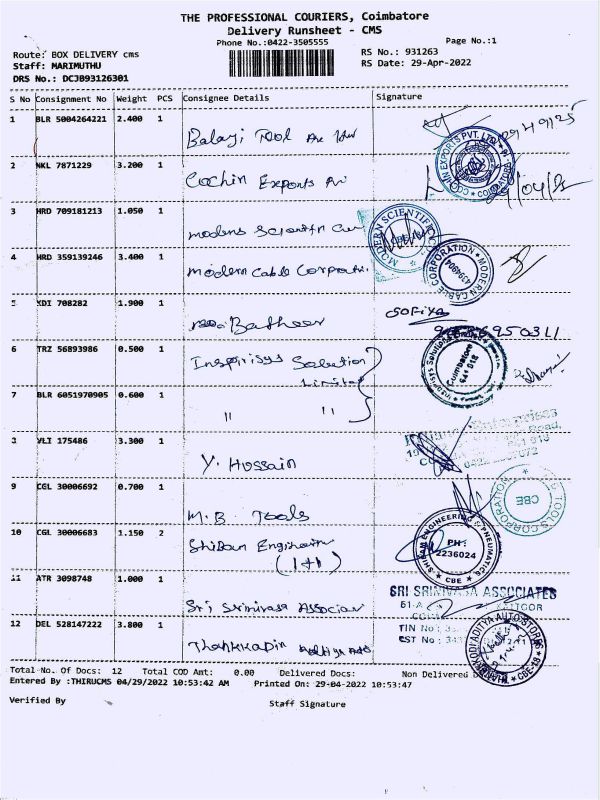 THE PROFESSIONAL COURIERS, Coimbatore
Delivery Runsheet - CMS
Phone No.:0422-3505555
Page No.:1
Route: BOX DELIVERY cms
RS No.: 931263
Staff: MARIMUTHU
RS Date: 29-Apr-2022
DRS No.: DCJB93126301
S No Consignment No Weight PCS Consignee Details Signature
1 BLR 5004264221 2.400 1 Balaji Tool
2 NKL 7871229 3.200 1 Cochin Exports
3 HRD 709181213 1.050 1 modern Scientific
4 HRD 359139246 3.400 1 modern Cable
5 KDI 708282 1.900 1
SOFIYA
6 TRZ 56893986 0.500 1 Inspirisys Solution
Limited
7 BLR 6051970905 0.600 1 " "
VLI 175486 3.300 1 Y. Hussain
9 CGL 30006692 0.700 1 M.B. Tools
10 CGL 30006683 1.150 2 Shiban
(1+1)
11 ATR 3098748 1.000 1 Sri Srinivasa
12 DEL 528147222 3.800 1
MODERN SCIENTIFIC
MODERN CABLE CORPORATION
Inspirisys Solutions
Coimbatore
641 018
TOOLS CORPORATION
CBE
ENGINEERING & PNEUMATICS
PH:
2236024
CBE
SRI SRINIVASA ASSOCIATES
TIN No :
CST No :
ADITYA AUTO STORES
Total No. Of Docs: 12 Total COD Amt: 0.00 Delivered Docs: Non Delivered
Entered By :THIRUCMS 04/29/2022 10:53:42 AM Printed On: 29-04-2022 10:53:47
Verified By
Staff Signature